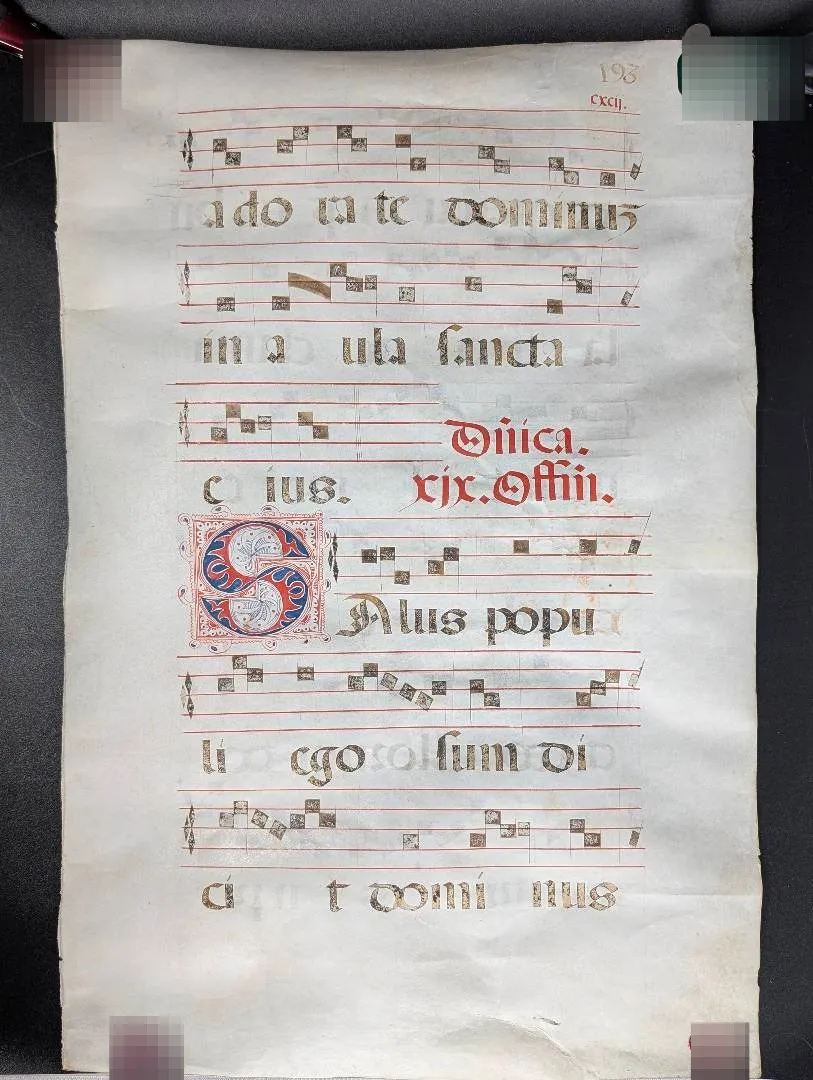 193
cxcij.
ado ra te dominuz
in a ula sancta
c ius.
Dñica.
xix. Offiñ.
SAlus popu
li ego sum di
ci t domi nus